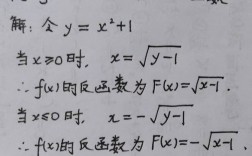 解：令 y = x²+1
当 x≥0时， x = √(y-1)
∴ f(x)的反函数为 F(x)=√(x-1) .
当 x≤0 时， x = -√(y-1)
∴ f(x)的反函数为 F(x)= -√(x-1)